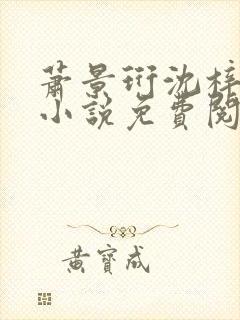 萧景珩沈梓
小說免費閱
黃寶成